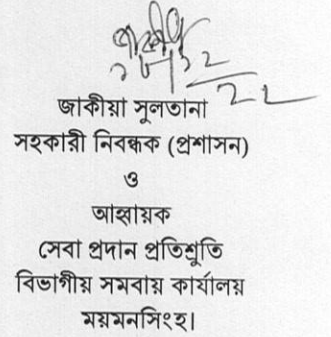 জাকীয়া সুলতানা
সহকারী নিবন্ধক (প্রশাসন)
ও
আহ্বায়ক
সেবা প্রদান প্রতিশ্রুতি
বিভাগীয় সমবায় কার্যালয়
ময়মনসিংহ।